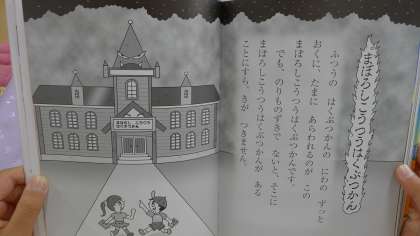 まぼろしこうつうはくぶつかん
ふつうの　はくぶつかんの　にわの　ずっと
おくに、たまに　あらわれるのが　この
まぼろしこうつうはくぶつかんです。
でも、のりものずきで　ないと、そこに
まぼろしこうつうはくぶつかんが　ある
ことにすら、きが　つきません。
まぼろし　こうつう
はくぶつかん